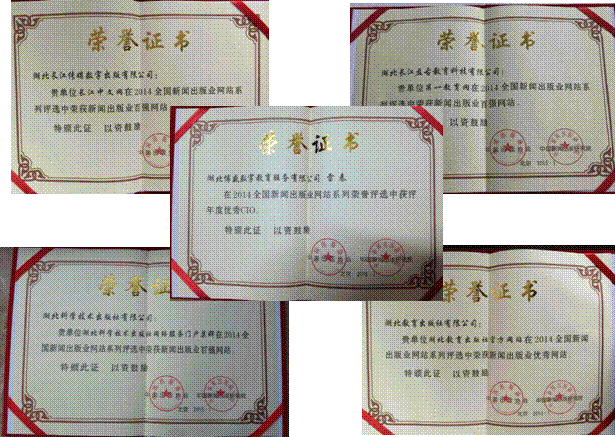 荣誉证书
湖北长江传媒数字出版有限公司：
贵单位长江中文网在2014全国新闻出版业网站系
列评选中荣获新闻出版业百强网站
特颁此证 以资鼓励
荣誉证书
湖北长江盘古教育科技有限公司：
贵单位第一教育网在2014全国新闻出版业网站系
列评选中荣获新闻出版业百强网站
以资鼓励
北京 2015 1
荣誉证书
湖北博盛数字教育服务有限公司
在2014全国新闻出版业网站系列荣誉评选中获评
年度优秀CIO。
特颁此证 以资鼓励
荣誉证书
湖北科学技术出版社有限公司：
贵单位湖北科学技术出版社网络服务门户集群在2014全
国新闻出版业网站系列评选中荣获新闻出版业百强网站
特颁此证 以资鼓励
荣誉证书
湖北教育出版社有限公司：
贵单位湖北教育出版社官方网站在2014全国新闻
出版业网站系列评选中荣获新闻出版业优秀网站。
特颁此证 以资鼓励